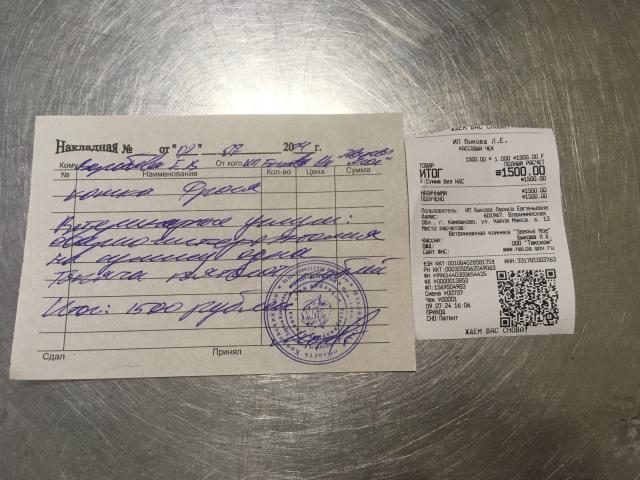 Накладная № от "09" 07 2024 г.
Кому Е.В. От кого ИП Быкова
№ Наименование Кол-во Цена Сумма
кошка Фрося
Ветеринарные услуги:
овариогистерэктомия
на сумму одна
тысяча пятьсот рублей
Итог: 1500 рублей
Сдал Принял
ЖДЕМ ВАС СНОВА!
ИП Быкова Л.Е.
КАССОВЫЙ ЧЕК
1500.00 * 1.000 =1500.00
ТОВАР ПОЛНЫЙ РАСЧЕТ
ИТОГ =1500.00
Сумма без НДС =1500.00
НАЛИЧНЫМИ =1500.00
ПОЛУЧЕНО =1500.00
Пользователь: ИП Быкова Лариса Евгеньевна
Адрес: 601967, Владимирская
обл., г. Камешково, ул. Карла Маркса, д. 13
Место расчетов:
Ветеринарная клиника "Зверье Мое"
Кассир: Быкова Л.Е.
ОФД: ООО "Такском"
Сайт ФНС: www.nalog.gov.ru
ИНН:331701003763
Смена №00737
Чек №00001
09.07.24 16:06
ПРИХОД
СНО:Патент
ЖДЕМ ВАС СНОВА!